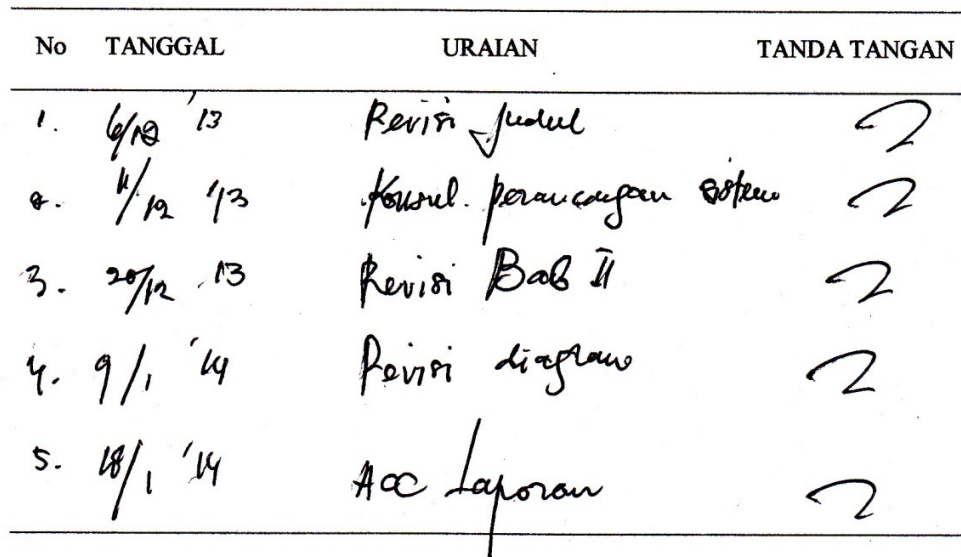 No TANGGAL URAIAN TANDA TANGAN
1. 6/12 '13 Revisi Judul
2. 11/12 '13 Konsul. perancangan sistem
3. 20/12 '13 Revisi Bab II
4. 9/1 '14 Revisi diagram
5. 18/1 '14 Acc Laporan